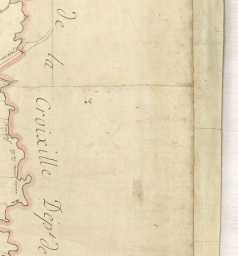 de la Croixille Dépt de